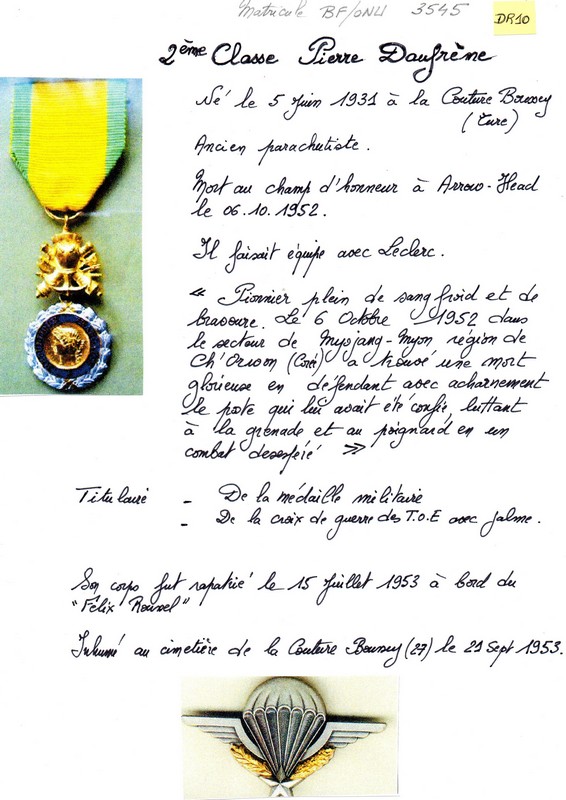 Matricule BF/ONU 3545
DP.10
2ème Classe Pierre Daufrène
Né le 5 Juin 1931 à la Couture Boussey
(Eure)
Ancien parachutiste.
Mort au champ d'honneur à Arrow-Head
le 06.10.1952.
Il faisait équipe avec Leclerc.
" Pionnier plein de sang froid et de
bravoure. Le 6 Octobre 1952 dans
le secteur de Myojang-Myon région de
Ch'Orwon (Corée) a trouvé une mort
glorieuse en défendant avec acharnement
le poste qui lui avait été confié, luttant
à la grenade et au poignard en un
combat desespéré »
Titulaire - De la médaille militaire
- De la croix de guerre des T.O.E avec palme.
Son corps fut rapatrié le 15 Juillet 1953 à bord du
"Félix Roussel"
Inhumé au cimetière de la Couture Boussey (27) le 21 Sept 1953.